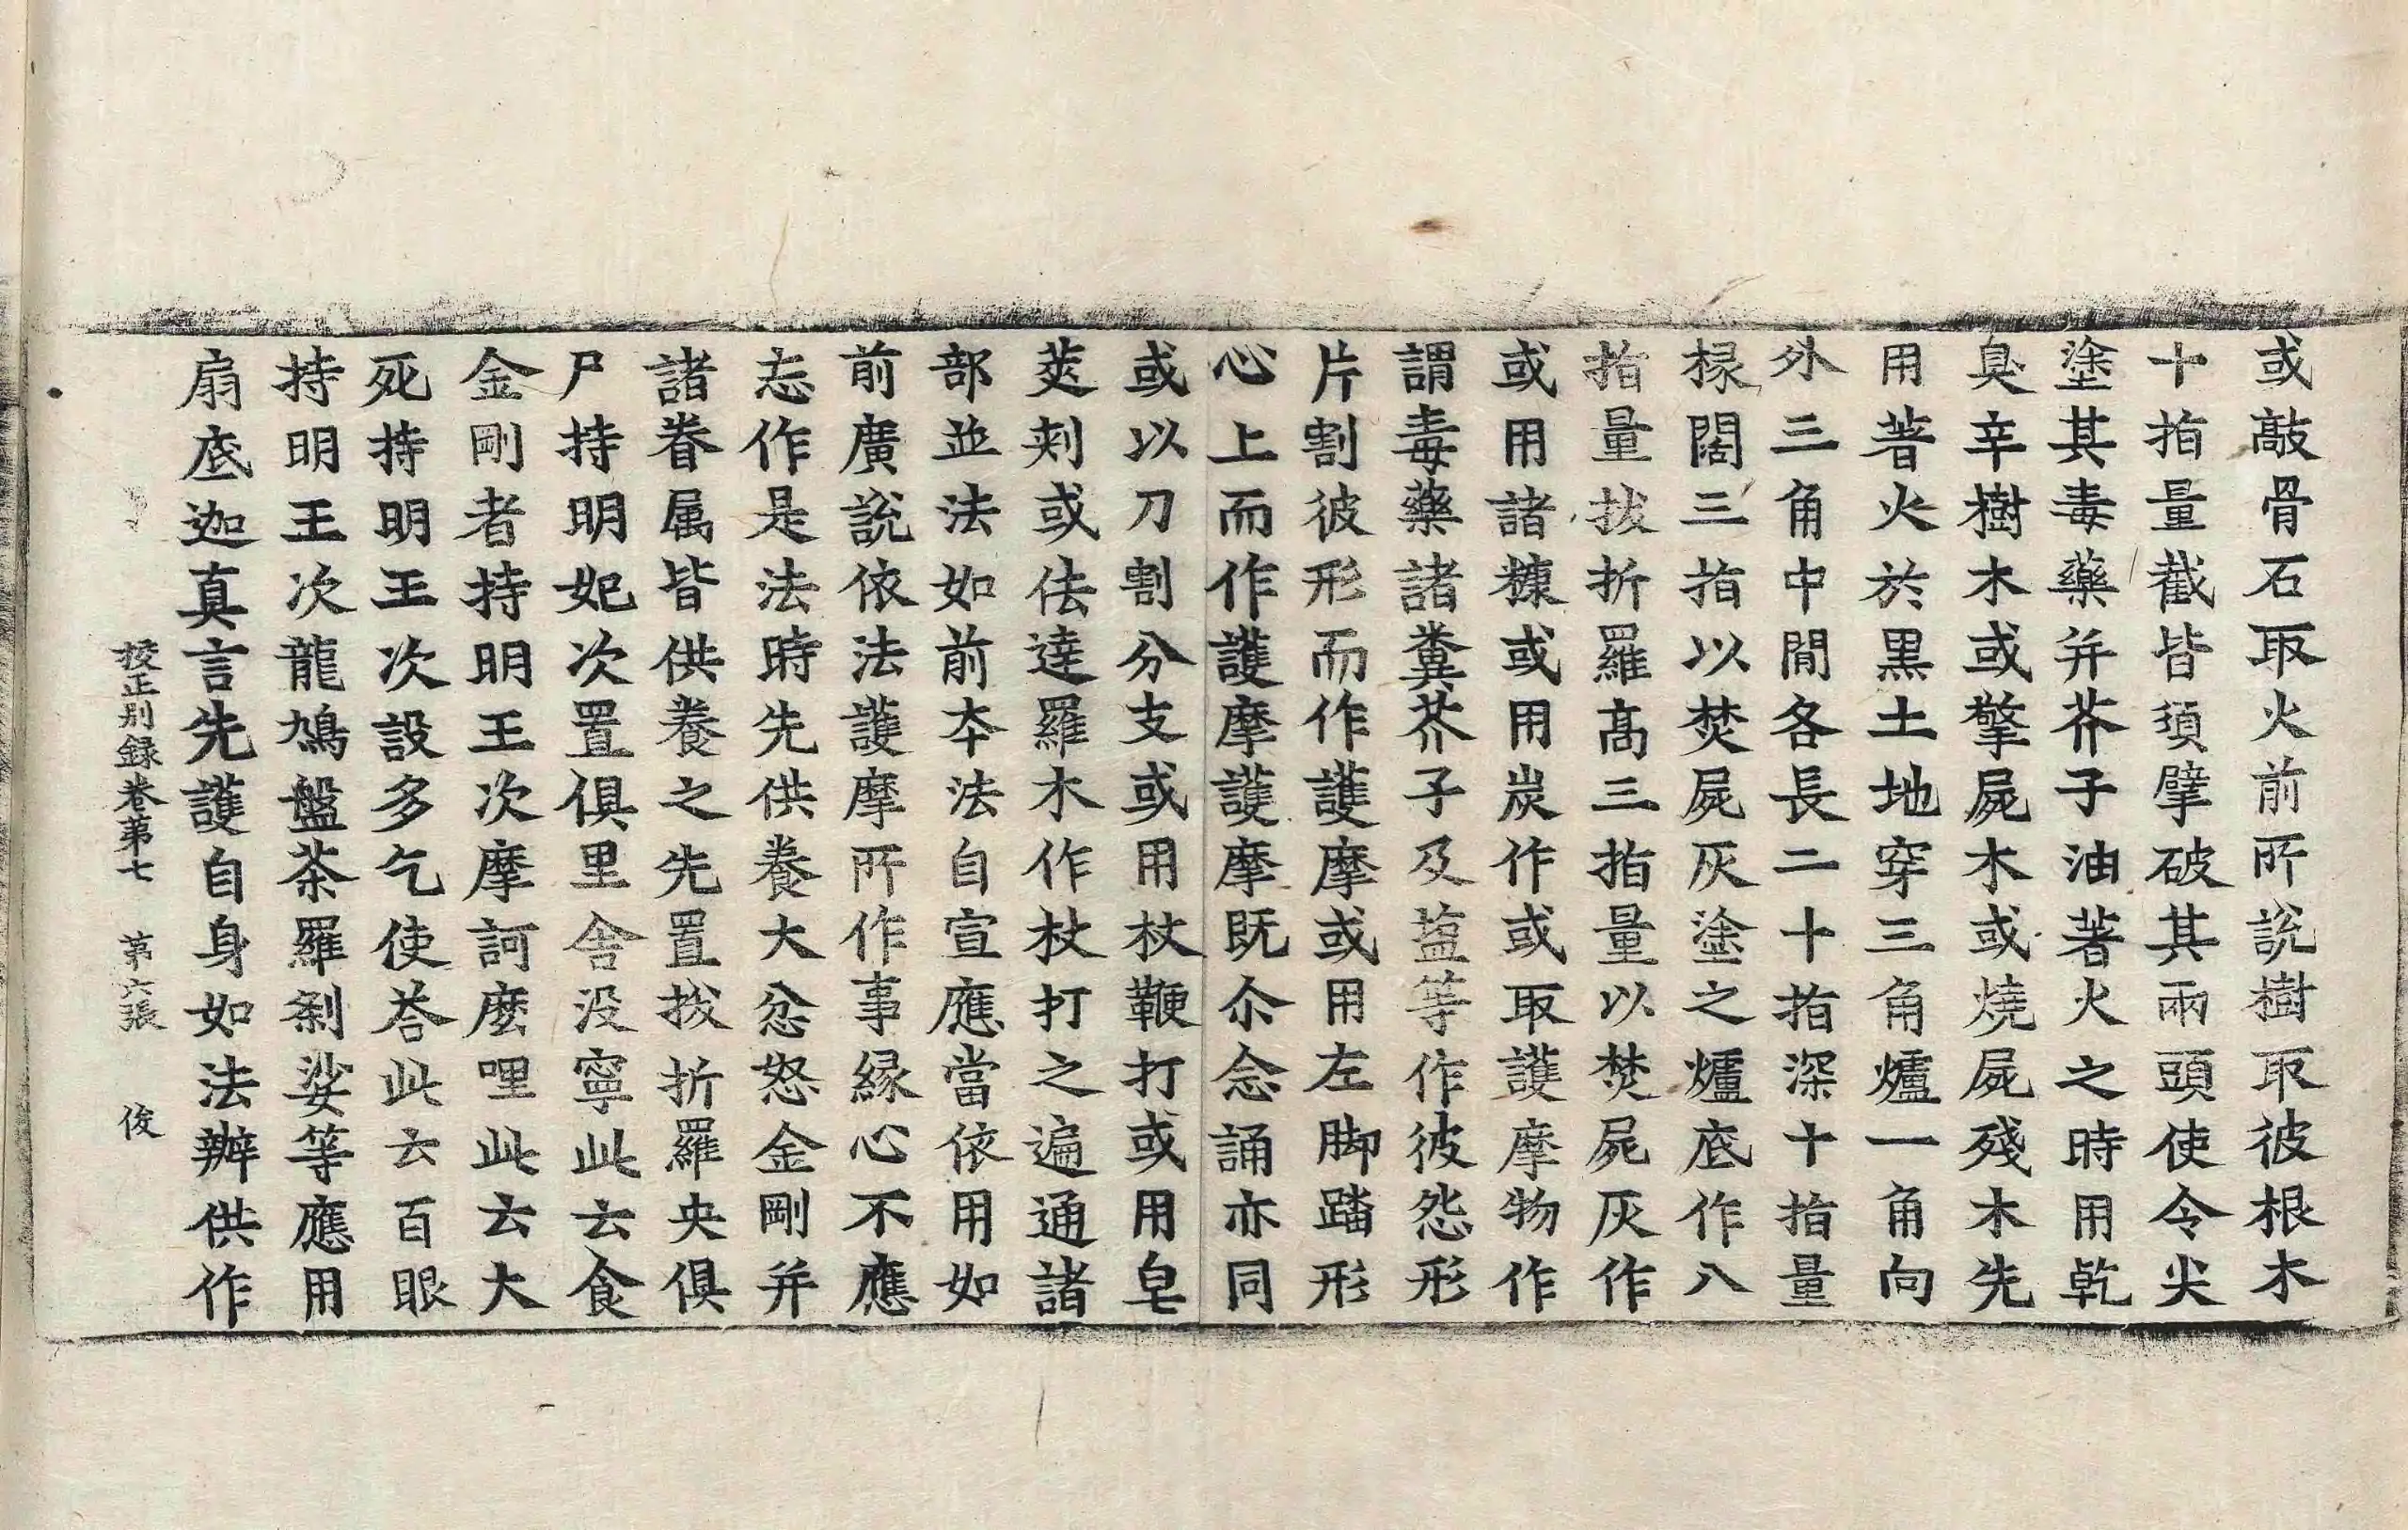 或敲骨石取火前所說樹取彼根木
十指量截皆須擘破其兩頭使令尖
塗其毒藥并芥子油著火之時用乾
臭辛樹木或擎屍木或燒屍殘木先
用著火於黒土地穿三角爐一角向
外三角中閒各長二十指深十指量
椽闊三指以焚屍灰塗之爐底作八
指量拔折羅髙三指量以焚屍灰作
或用諸糠或用炭作或取護摩物作
謂毒藥諸糞芥子及盐等作彼怨形
片割彼形而作護摩或用左脚踏形
心上而作護摩護摩既尒念誦亦同
或以刀割分支或用杖鞭打或用皂
莢刺或佉達羅木作杖打之遍通諸
部並法如前夲法自宣應當依用如
前廣說依法護摩所作事縁心不應
忘作是法時先供養大忿怒金剛并
諸眷属皆供養之先置拔折羅央俱
尸持明妃次置俱里舍没寧此云食
金剛者持明王次摩訶麽哩此云大
死持明王次設多乞使荅此云百眼
持明王次龍鳩盤茶羅剎娑等應用
扇底迦真言先護自身如法辦供作
挍正別録卷苐七 苐六張 俊